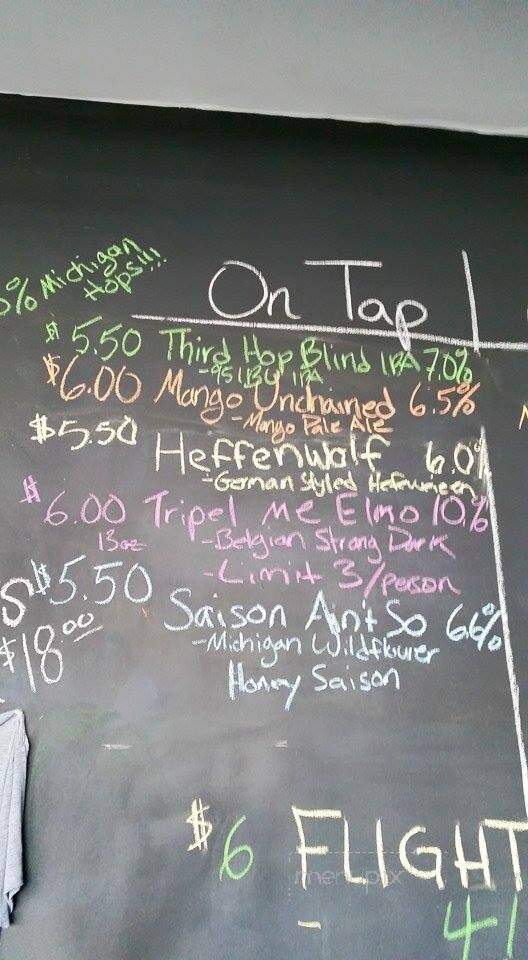 % Michigan
Hops!!!
On Tap
$5.50 Third Hop Blind IPA 7.0%
-95 IBU IPA
$6.00 Mango Unchained 6.5%
-Mango Pale Ale
$5.50 Heffenwolf 6.0%
-German Styled Hefeweizen
$6.00 Tripel Me Elmo 10%
13oz -Belgian Strong Dark
-Limit 3/person
$5.50 Saison Ain't So 6.6%
-Michigan Wildflower
Honey Saison
$18.00
$6 FLIGHT
menupix